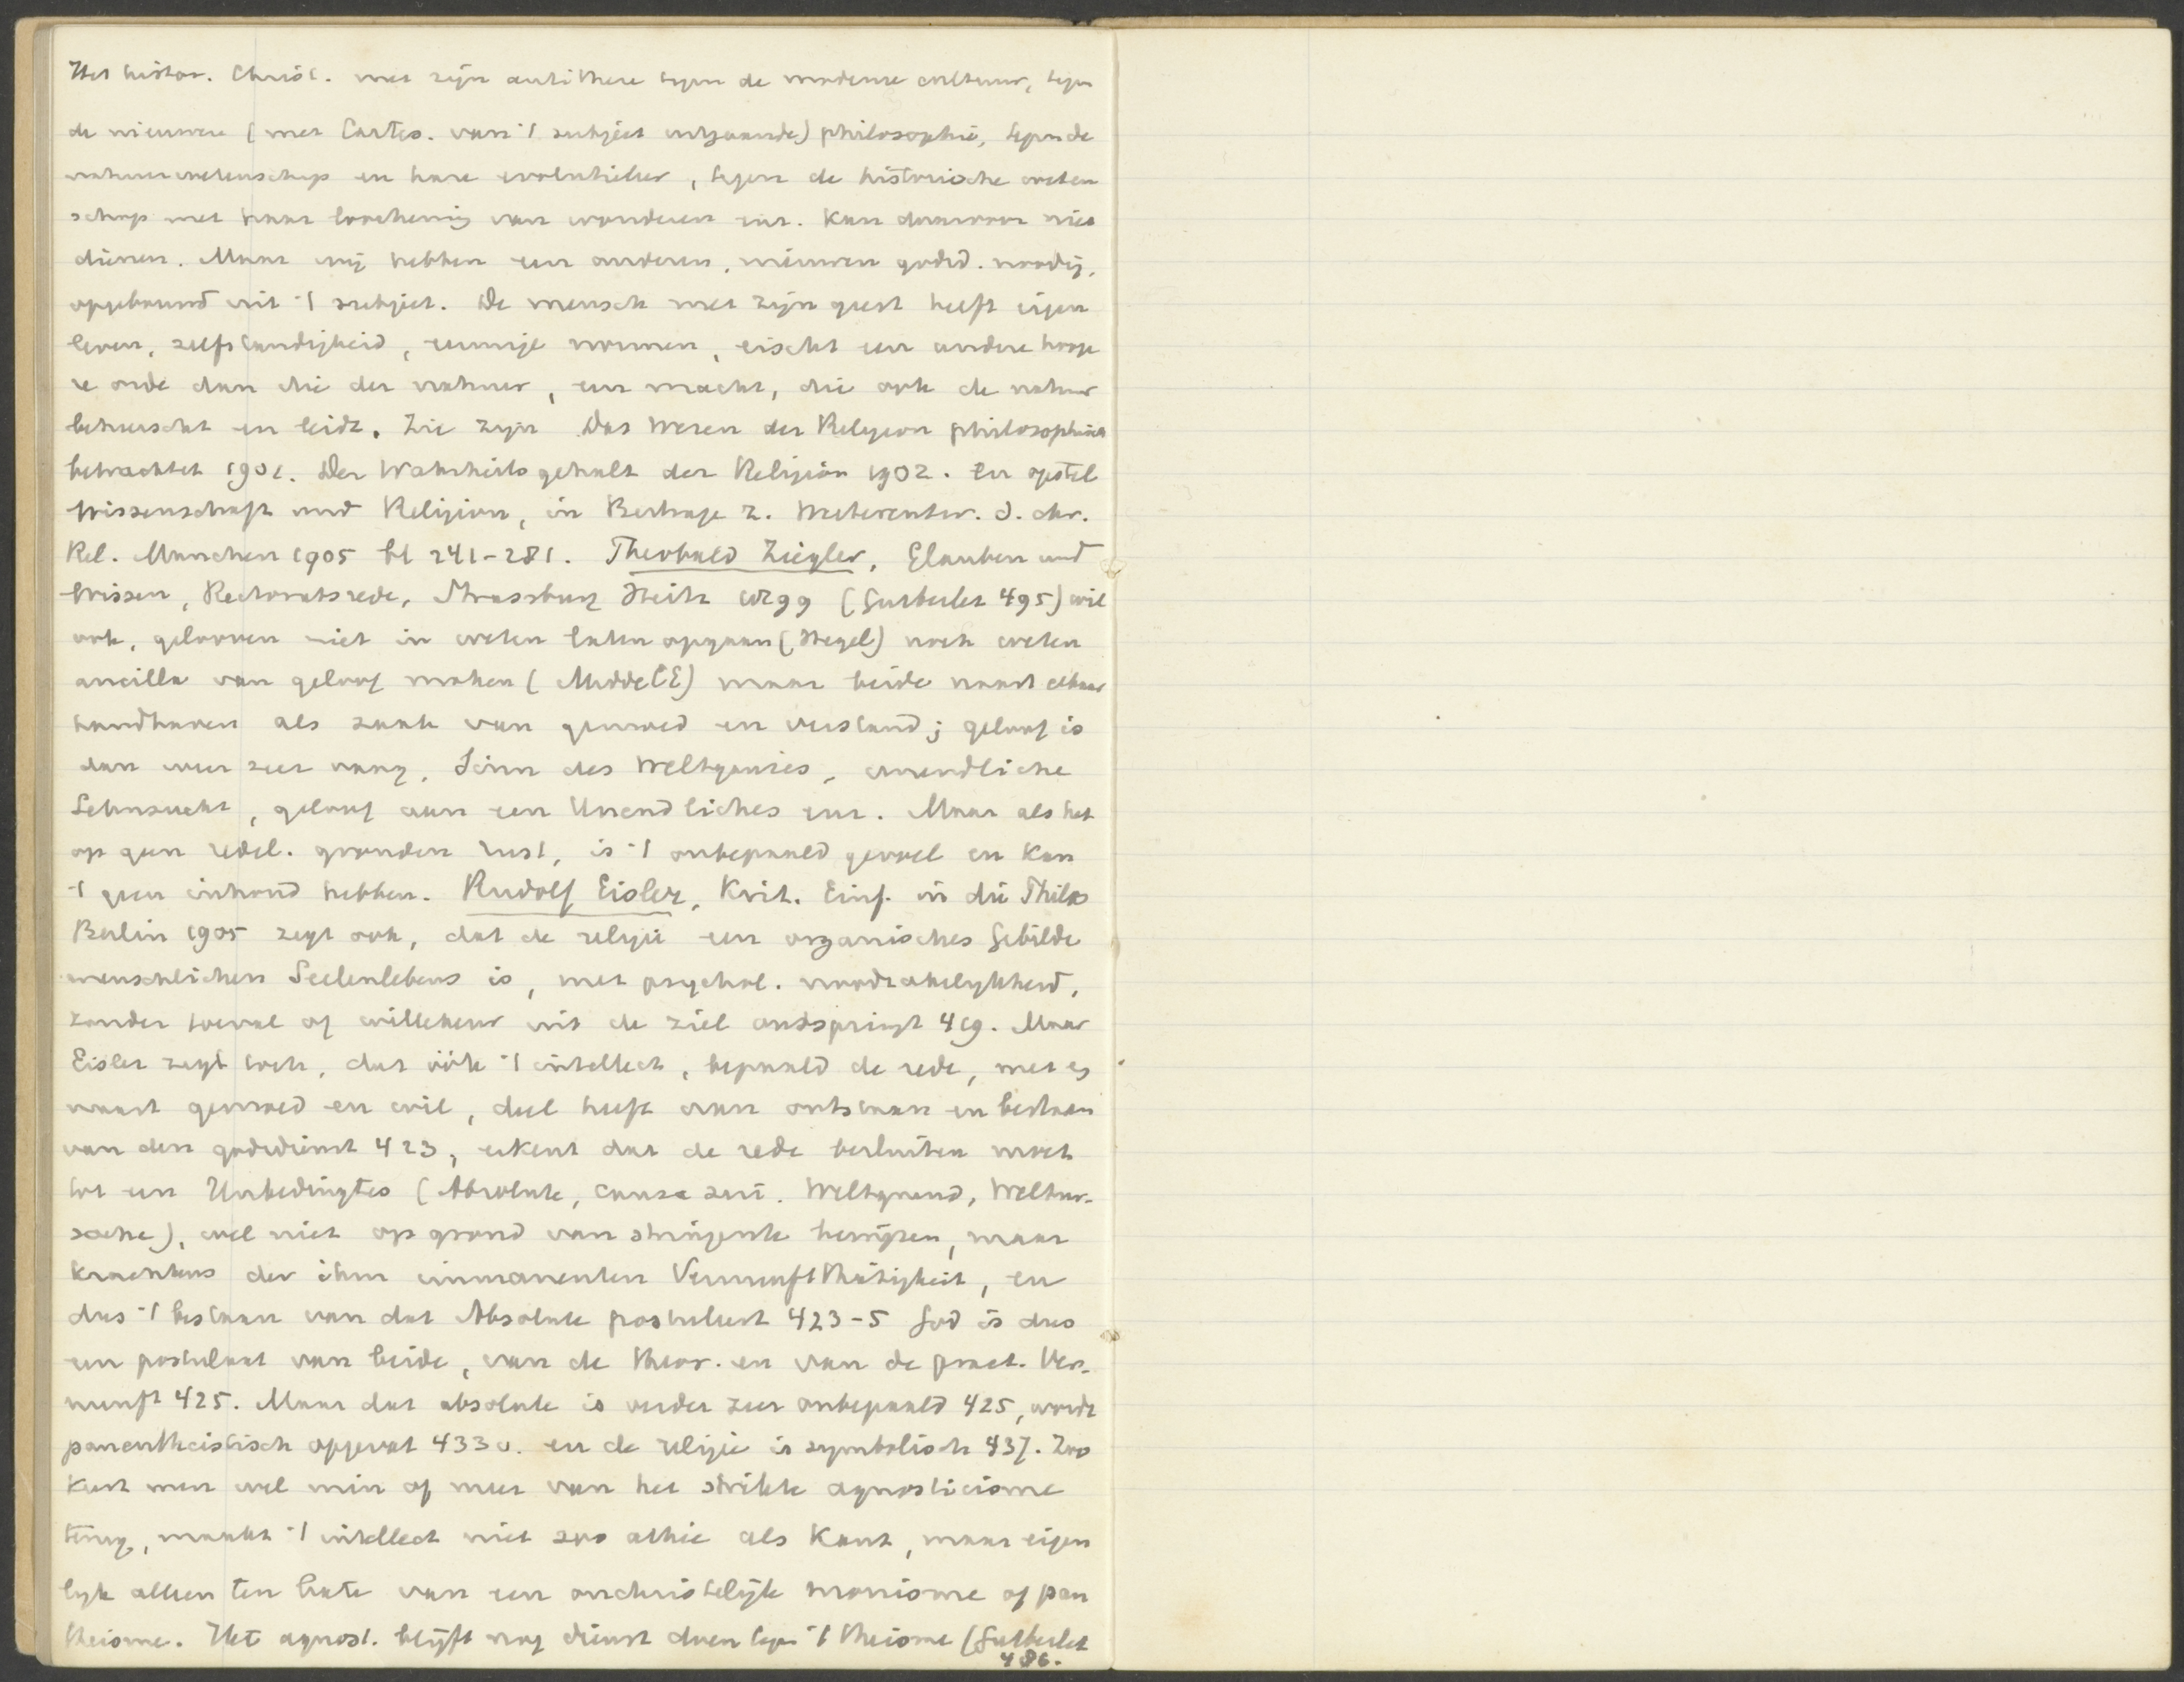 Het histor. Christ. met zijn antithese tegen de moderne cultuur, tegen
de nieuwere (met Cartes. van 't subject uitgaande) philosophie, tegen de
natuurwetenschap en hare evolutieleer, tegen de historische weten
schap met haar loochening van wonderen enz. kan daarvoor niet
dienen. Maar wij hebben een anderen, nieuwen godsd. noodig,
opgebouwd uit 't subject. De mensch met zijn geest heeft eigen
leven, zelfstandigheid, eeuwige normen, eischt een andere hooge
re orde dan die der natuur, een macht, die ook de natuur
beheerscht en leidt. Zie zijn Das Wesen der Religion philosophisch
betrachtet 1901. Der Wahrheitsgehalt der Religion 1902. En opstel
Wissenschaft und Religion, in Beitrage z. Weiterentw. d. chr.
Rel. Munchen 1905 bl 241-281. Theobald Ziegler, Glauben und
Wissen, Rectoratsrede, Strassburg Heitz 1899 (Gutberlet 495) wil
ook, gelooven niet in weten laten opgaan (Hegel) noch weten
ancilla van geloof maken (MiddelE) maar beide naast elkaar
handhaven als zaak van gemoed en verstand; geloof is
dan weer zeer vaag, Sinn des Weltganzes, unendliche
Sehnsucht, geloof aan een Unendliches enz. Maar als het
op geen redel. gronden rust, is 't onbepaald gevoel en kan
't geen inhoud hebben. Rudolf Eisler, Krit. Einf. in die Philos
Berlin 1905 zegt ook, dat de religie een organisches Gebilde
menschlichen Seelenlebens is, met psychol. noodzakelijkheid,
zonder toeval of willekeur uit de ziel ontspringt 419. Maar
Eisler zegt toch, dat óók 't intellect, bepaald de rede, met en
naast gemoed en wil, deel heeft aan ontstaan en bestaan
van den godsdienst 423, erkent dat de rede besluiten moet
tot een Unbedingtes (Absolute, causa sui. Weltgrund, Weltur-
sache), wel niet op grond van stringente bewijzen, maar
krachtens der ihm immanenten Vernunftthätigkeit, en
dus 't bestaan van dat Absolute postuleert 423-5 God is dus
een postulaat van beide, van de theor. en van de pract. Ver-
nunft 425. Maar dat absolute is verder zeer onbepaald 425, wordt
panentheistisch opgevat 433 v. en de religie is symbolisch 437. Zoo
keert men wel min of meer van het strikte agnosticisme
terug, maakt 't intellect niet zoo athie als Kant, maar eigen
lijk alleen ten bate van een onchristelijk monisme of pan
theisme. Het agnost. blijft nog dienst doen tegen 't theisme (Gutberlet
486.